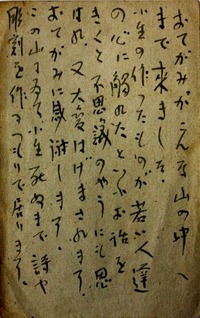 おてがみがこんな山の中へ
まで来ました。
小生の作つたものが若い人達
の心に触れたといふお話を
きくと不思議のやうにも思
はれ、又大変はげまされます。
おてがみに感謝します。
この山に居て小生死ぬまで詩や
彫刻を作るつもりで居ります。